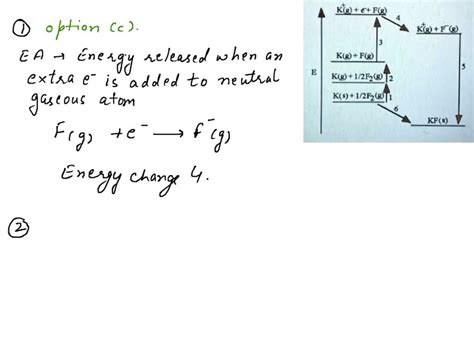 ① option (c).
EA → Energy released when an
extra e⁻ is added to neutral
gaseous atom
F(g) + e⁻ ⟶ F⁻(g)
Energy change 4.
②
K⁺(g) + e⁻ + F(g)
4
K⁺(g) + F⁻(g)
3
5
K(g) + F(g)
E
K(g) + 1/2F₂(g)
2
K(s) + 1/2F₂(g)
1
6
KF(s)